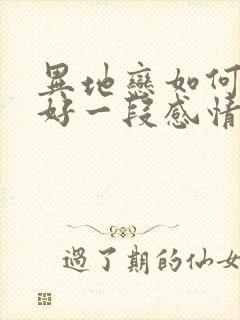 異地戀如何
好一段感情
過了期的仙女